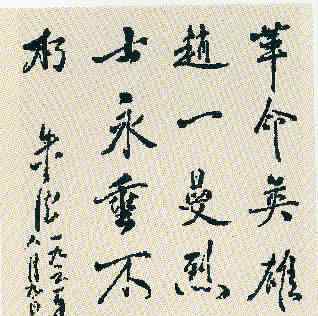 革命英雄
趙一曼烈
士永垂不
朽
朱德
八月九日